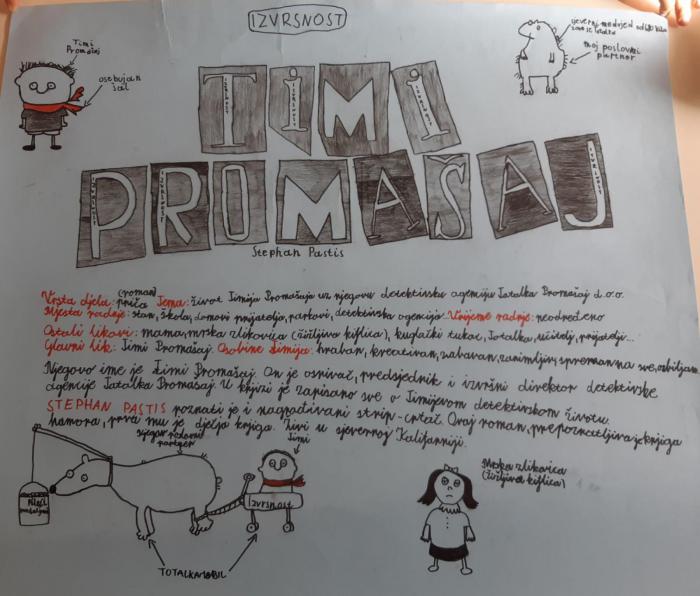 IZVRSNOST
Timi
Promašaj
osebujan
šal
sjeverni medvjed od 680 kila
zove se Totalka
moj poslovni
partner
TIMI
PROMAŠAJ
Stephan Pastis
Vrsta djela: priča (roman) Tema: život Timija Promašaja uz njegovu detektivsku agenciju Totalka Promašaj d.o.o.
Mjesta radnje: stan, škola, domovi prijatelja, parkovi, detektivska agencija Vrijeme radnje: neodređeno
Ostali likovi: mama, mrska zlikovica (žižljiva kiflica), kuglački tukac, Totalka, učitelj, prijatelji...
Glavni lik: Timi Promašaj. Osobine Timija: hrabar, kreativan, zabavan, zanimljiv, spreman na sve, ozbiljan
Njegovo ime je Timi Promašaj. On je osnivač, predsjednik i izvršni direktor detektivske
agencije Totalka Promašaj. U knjizi je zapisano sve o Timijevom detektivskom životu.
STEPHAN PASTIS poznati je i nagrađivani strip-crtač. Ovaj roman, prepoznatljiva je knjiga
humora, prva mu je dječja knjiga. Živi u sjevernoj Kaliforniji.
njegov poslovni
partner
Timi
Izvrsnost
TOTALKAMOBIL
Mrska zlikovica
(žižljiva kiflica)